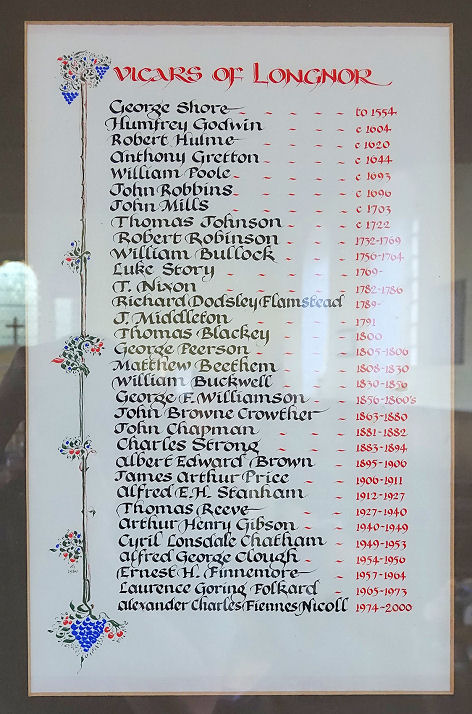 VICARS OF LONGNOR
George Shore to 1554
Humfrey Godwin c 1604
Robert Hulme c 1620
Anthony Gretton c 1644
William Poole c 1693
John Robbins c 1696
John Mills c 1703
Thomas Johnson c 1722
Robert Robinson 1732-1769
William Bullock 1756-1764
Luke Story 1769-
T. Nixon 1782-1786
Richard Dodsley Flamstead 1789-
J. Middleton 1791
Thomas Blackey 1800
George Peerson 1805-1806
Matthew Beethem 1808-1830
William Buckwell 1830-1856
George F. Williamson 1856-1860's
John Browne Crowther 1863-1880
John Chapman 1881-1882
Charles Strong 1883-1894
Albert Edward Brown 1895-1906
James Arthur Price 1906-1911
Alfred E.H. Stanham 1912-1927
Thomas Reeve 1927-1940
Arthur Henry Gibson 1940-1949
Cyril Lonsdale Chatham 1949-1953
Alfred George Clough 1954-1956
Ernest H. Finnemore 1957-1964
Laurence Goring Folkard 1965-1973
Alexander Charles Fiennes Nicoll 1974-2000